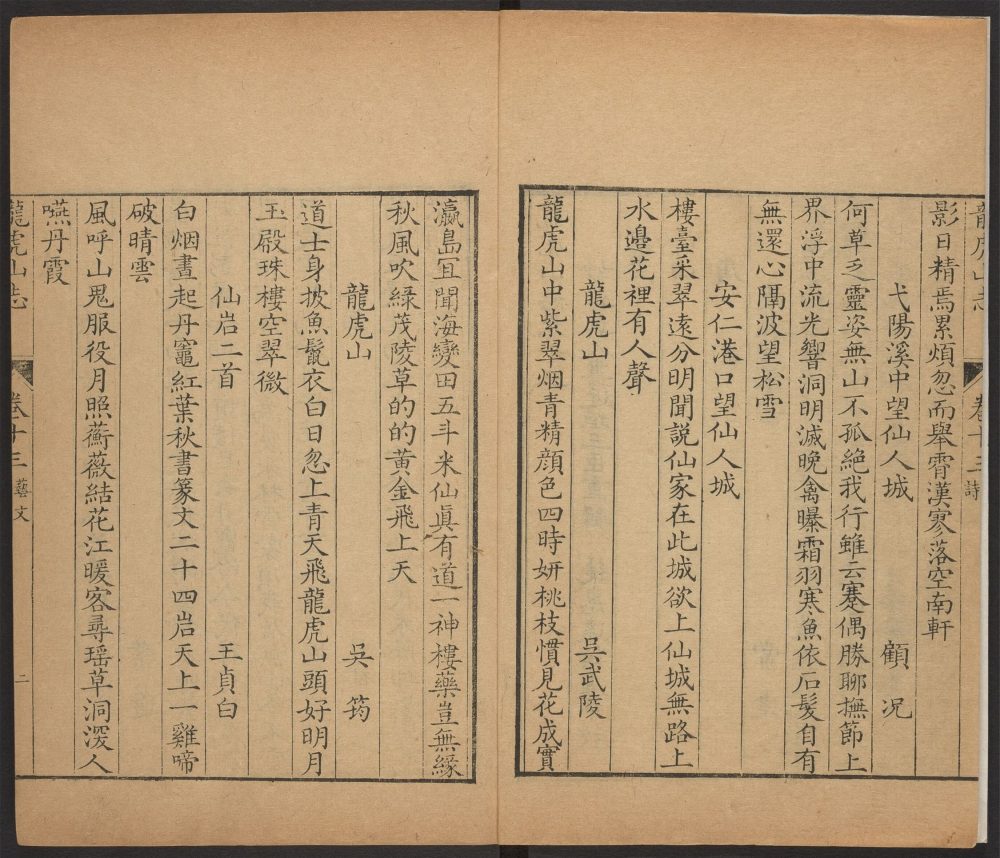 龍虎山志
卷十三 詩
影日精焉累煩忽而舉霄漢寥落空南軒
弋陽溪中望仙人城 顧況
何草乏靈姿無山不孤絶我行雖云蹇偶勝聊撫節上
界浮中流光響洞明滅晩禽曝霜羽寒魚依石髮自有
無還心隔波望松雪
安仁港口望仙人城
樓臺采翠遠分明聞説仙家在此城欲上仙城無路上
水邊花裡有人聲
龍虎山 吳武陵
龍虎山中紫翠烟青精顔色四時妍桃枝慣見花成實
瀛島冝聞海變田五斗米仙眞有道一神樓藥豈無緣
秋風吹綠茂陵草的的黄金飛上天
龍虎山 吳筠
道士身披魚鬛衣白日忽上青天飛龍虎山頭好明月
玉殿珠樓空翠微
仙岩二首 王貞白
白烟晝起丹竈紅葉秋書篆文二十四岩天上一雞啼
破晴雲
風呼山鬼服役月照蘅薇結花江暖客尋瑶草洞深人
嚥丹霞
龍虎山志
卷十三 藝文
二